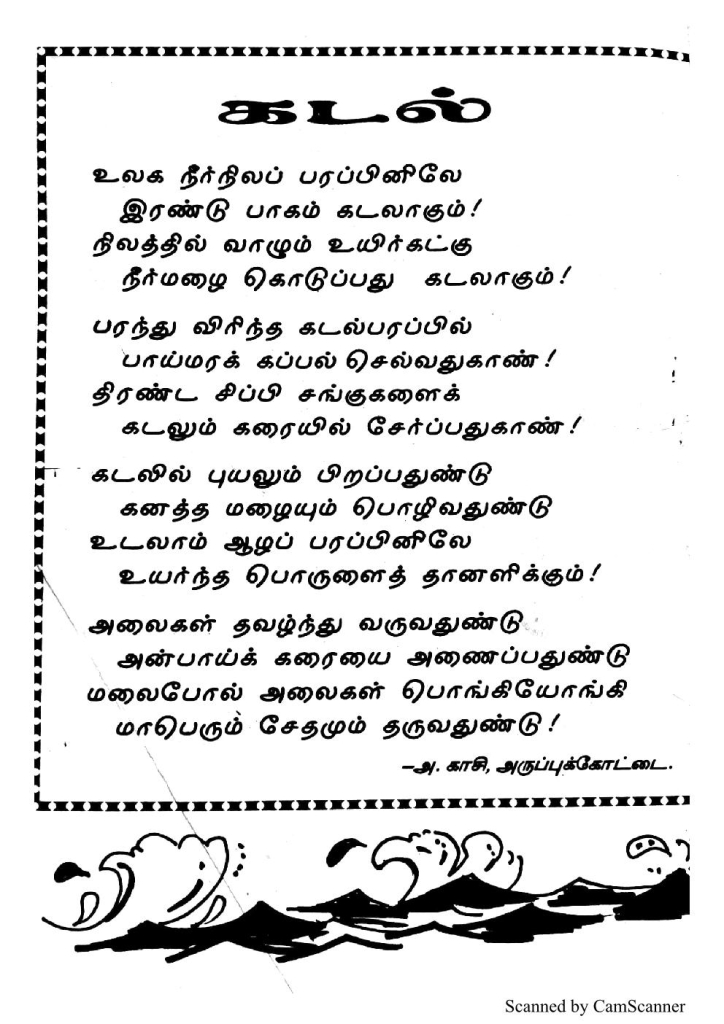 கடல்
உலக நீர்நிலப் பரப்பினிலே
இரண்டு பாகம் கடலாகும்!
நிலத்தில் வாழும் உயிர்கட்கு
நீர்மழை கொடுப்பது கடலாகும்!
பரந்து விரிந்த கடல்பரப்பில்
பாய்மரக் கப்பல் செல்வதுகாண்!
திரண்ட சிப்பி சங்குகளைக்
கடலும் கரையில் சேர்ப்பதுகாண்!
கடலில் புயலும் பிறப்பதுண்டு
கனத்த மழையும் பொழிவதுண்டு
உடலாம் ஆழப் பரப்பினிலே
உயர்ந்த பொருளைத் தானளிக்கும்!
அலைகள் தவழ்ந்து வருவதுண்டு
அன்பாய்க் கரையை அணைப்பதுண்டு
மலைபோல் அலைகள் பொங்கியோங்கி
மாபெரும் சேதமும் தருவதுண்டு!
–அ. காசி, அருப்புக்கோட்டை.
Scanned by CamScanner